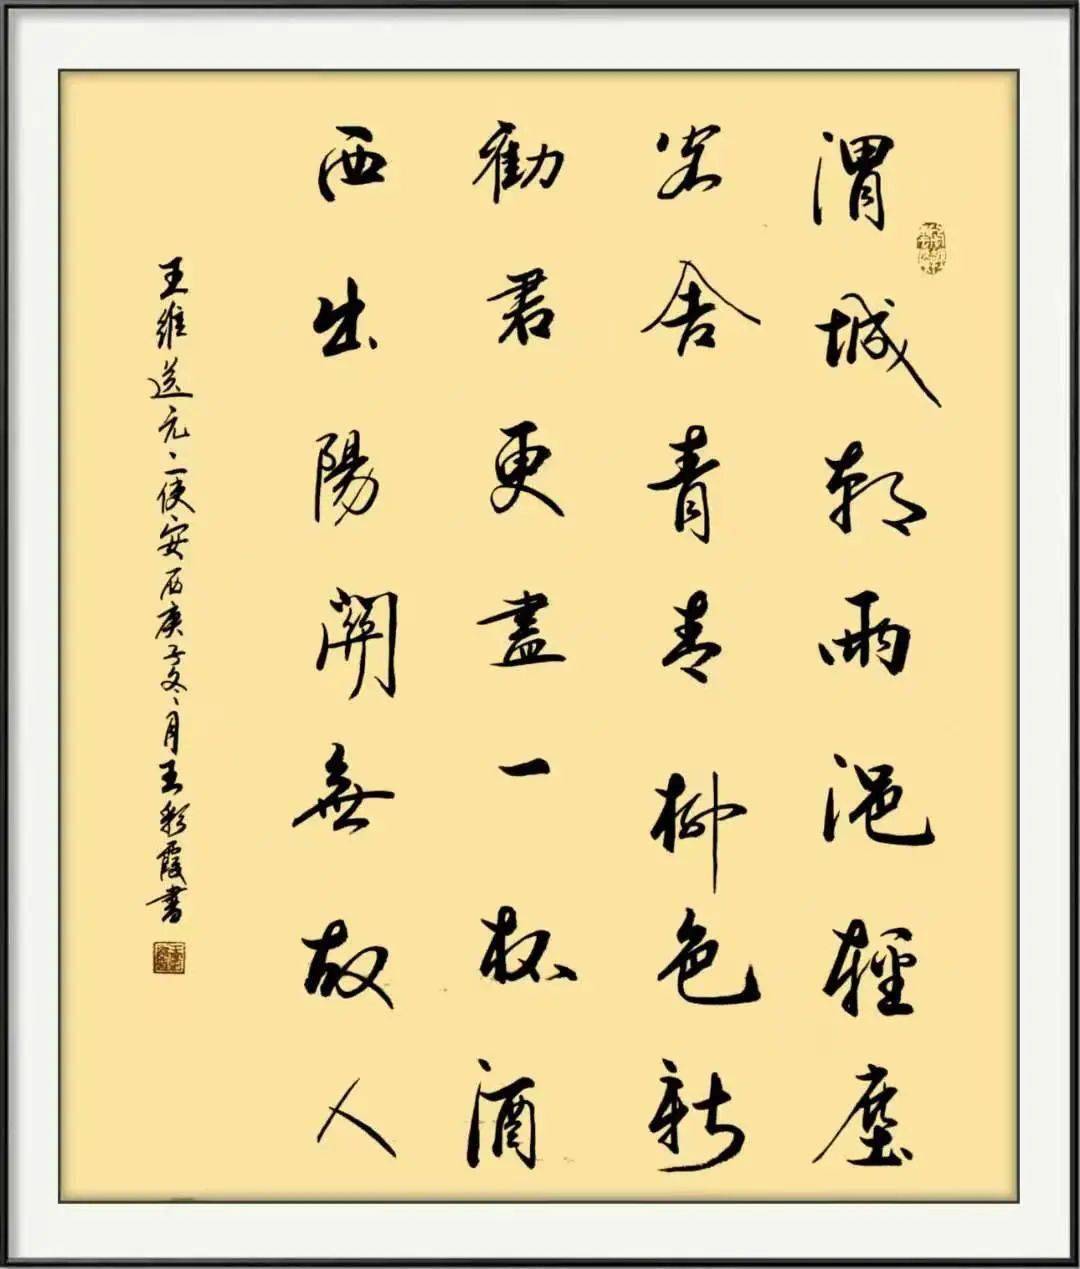 渭城朝雨浥輕塵
客舍青青柳色新
勸君更盡一杯酒
西出陽關無故人
王維送元二使安西庚子冬月王彩霞書